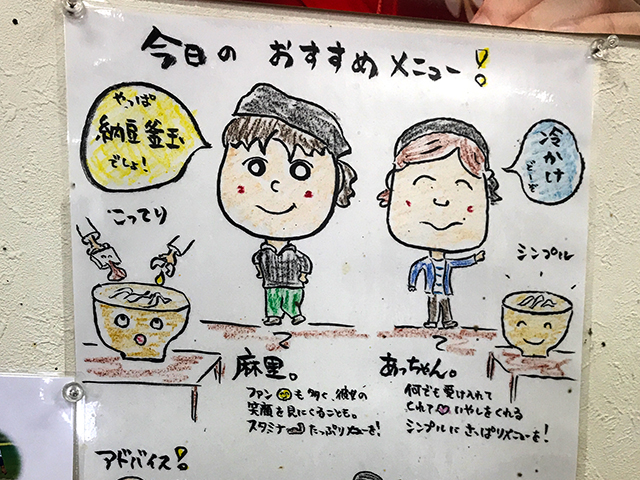 今日の おすすめメニュー!
やっぱ
納豆釜玉
でしょ!
冷かけ
どーぞ
こってり
シンプル
麻里。
ファンも多く、彼女の
笑顔を見にくることも。
スタミナたっぷりメニューを!
あっちゃん。
何でも受け入れて
くれていやしをくれる
シンプルにさっぱりメニューを!
アドバイス!